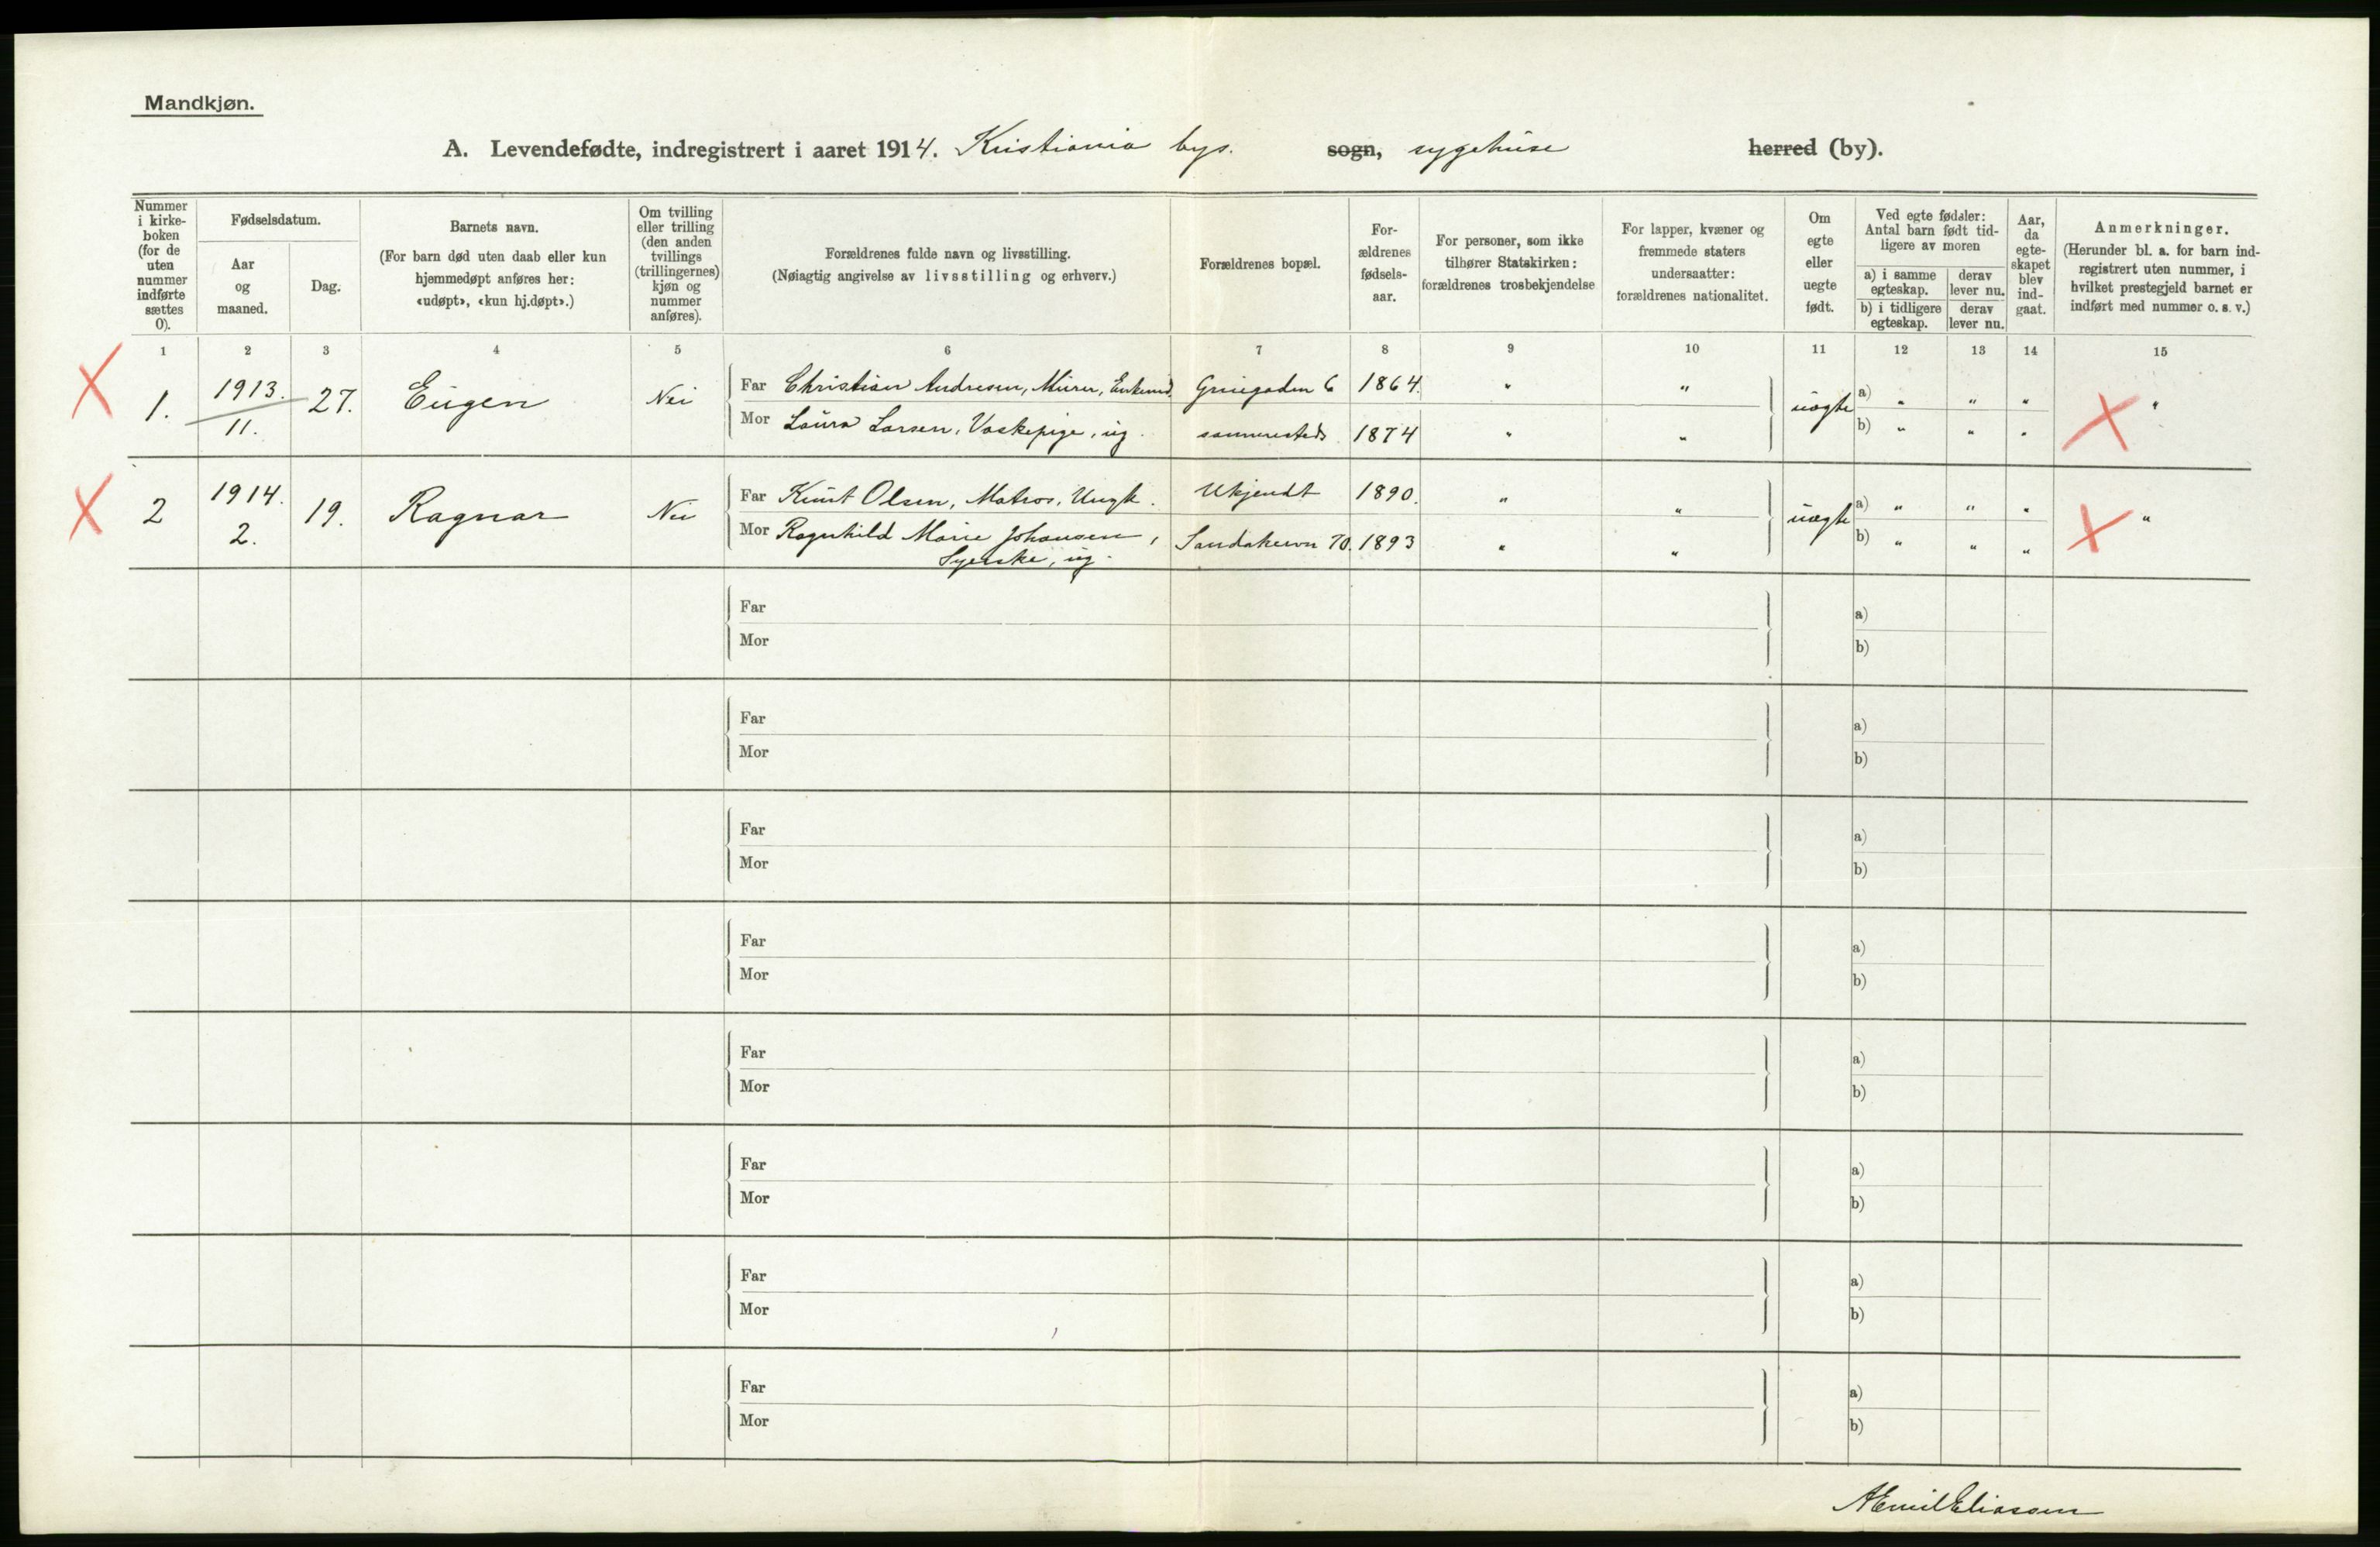 Mandkjøn.
A. Levendefødte, indregistrert i aaret 1914. Kristiania bys. sogn, sygehuse herred (by).
Nummer i kirke-boken (for de uten nummer indførte sættes 0).
Fødselsdatum.
Aar og maaned.
Dag.
Barnets navn.
(For barn død uten daab eller kun hjemmedøpt anføres her: «udøpt», «kun hj.døpt».)
Om tvilling eller trilling (den anden tvillings (trillingernes) kjøn og nummer anføres).
Forældrenes fulde navn og livsstilling.
(Nøiagtig angivelse av livsstilling og erhverv.)
Forældrenes bopæl.
For-ældrenes fødsels-aar.
For personer, som ikke tilhører Statskirken: forældrenes trosbekjendelse
For lapper, kvæner og fremmede staters undersaatter: forældrenes nationalitet.
Om egte eller uegte født.
Ved egte fødsler: Antal barn født tid-ligere av moren
a) i samme egteskap.
derav lever nu.
b) i tidligere egteskap.
derav lever nu.
Aar, da egte-skapet blev ind-gaat.
Anmerkninger.
(Herunder bl. a. for barn ind-registrert uten nummer, i hvilket prestegjeld barnet er indført med nummer o. s. v.)
1 2 3 4 5 6 7 8 9 10 11 12 13 14 15
1. 1913. 11. 27. Eugen Nei
Far Christian Andresen, Murer, Enkemd. Gruegaden 6 1864. " "
uegte a) " " " "
Mor Laura Larsen, Vaskepige, ug. sammesteds 1874 " "
b) " " "
2 1914. 2. 19. Ragnar Nei
Far Knut Olsen, Matros, Ungk. Ukjendt 1890. " "
uegte a) " " " "
Mor Ragnhild Marie Johansen, Sandakervn 70. 1893 " "
Syerske, ug.
b) " " "
Far
a)
Mor
b)
Far
a)
Mor
b)
Far
a)
Mor
b)
Far
a)
Mor
b)
Far
a)
Mor
b)
Far
a)
Mor
b)
Far
a)
Mor
b)
Far
a)
Mor
b)
AEmilEliassen